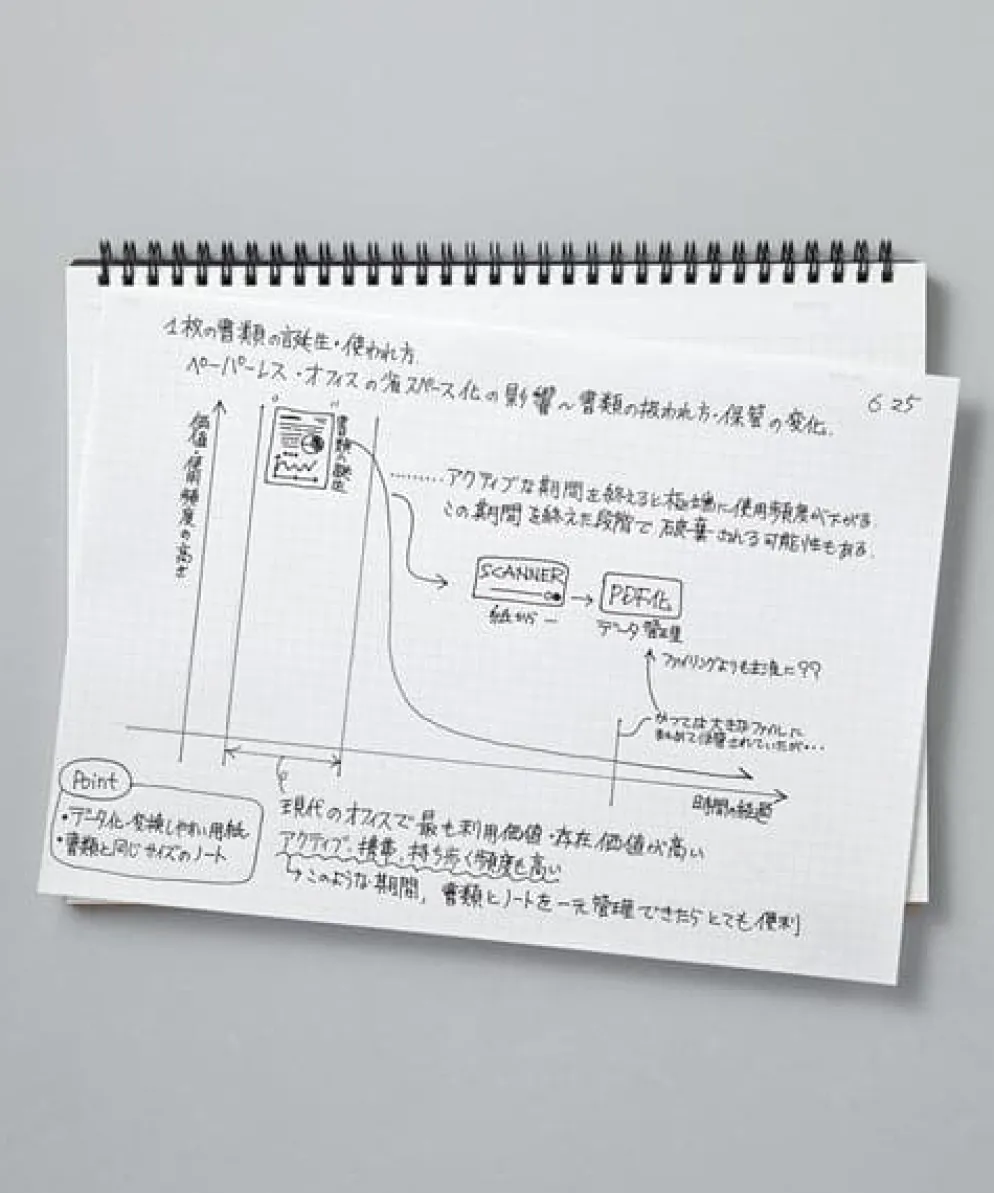 1枚の書類の誕生・使われ方.
ペーパーレス・オフィスの省スペース化の影響〜書類の扱われ方・保管の変化.
6.25
価値・使用頻度の高さ
書類の誕生
………アクティブな期間を終えると極端に使用頻度が下がる.
この期間を終えた段階で破棄される可能性もある.
SCANNER
紙から—
PDF化
データ管理
ファイリングよりも主流に??
かつては大きなファイルに
まとめて保管されていたが・・・
時間の経過
Point
・データ化・変換しやすい用紙
・書類と同じサイズのノート
現代のオフィスで最も利用価値・存在価値が高い
アクティブ、携帯、持ち歩く頻度も高い
↳このような期間,書類とノートを一元管理できたらとても便利